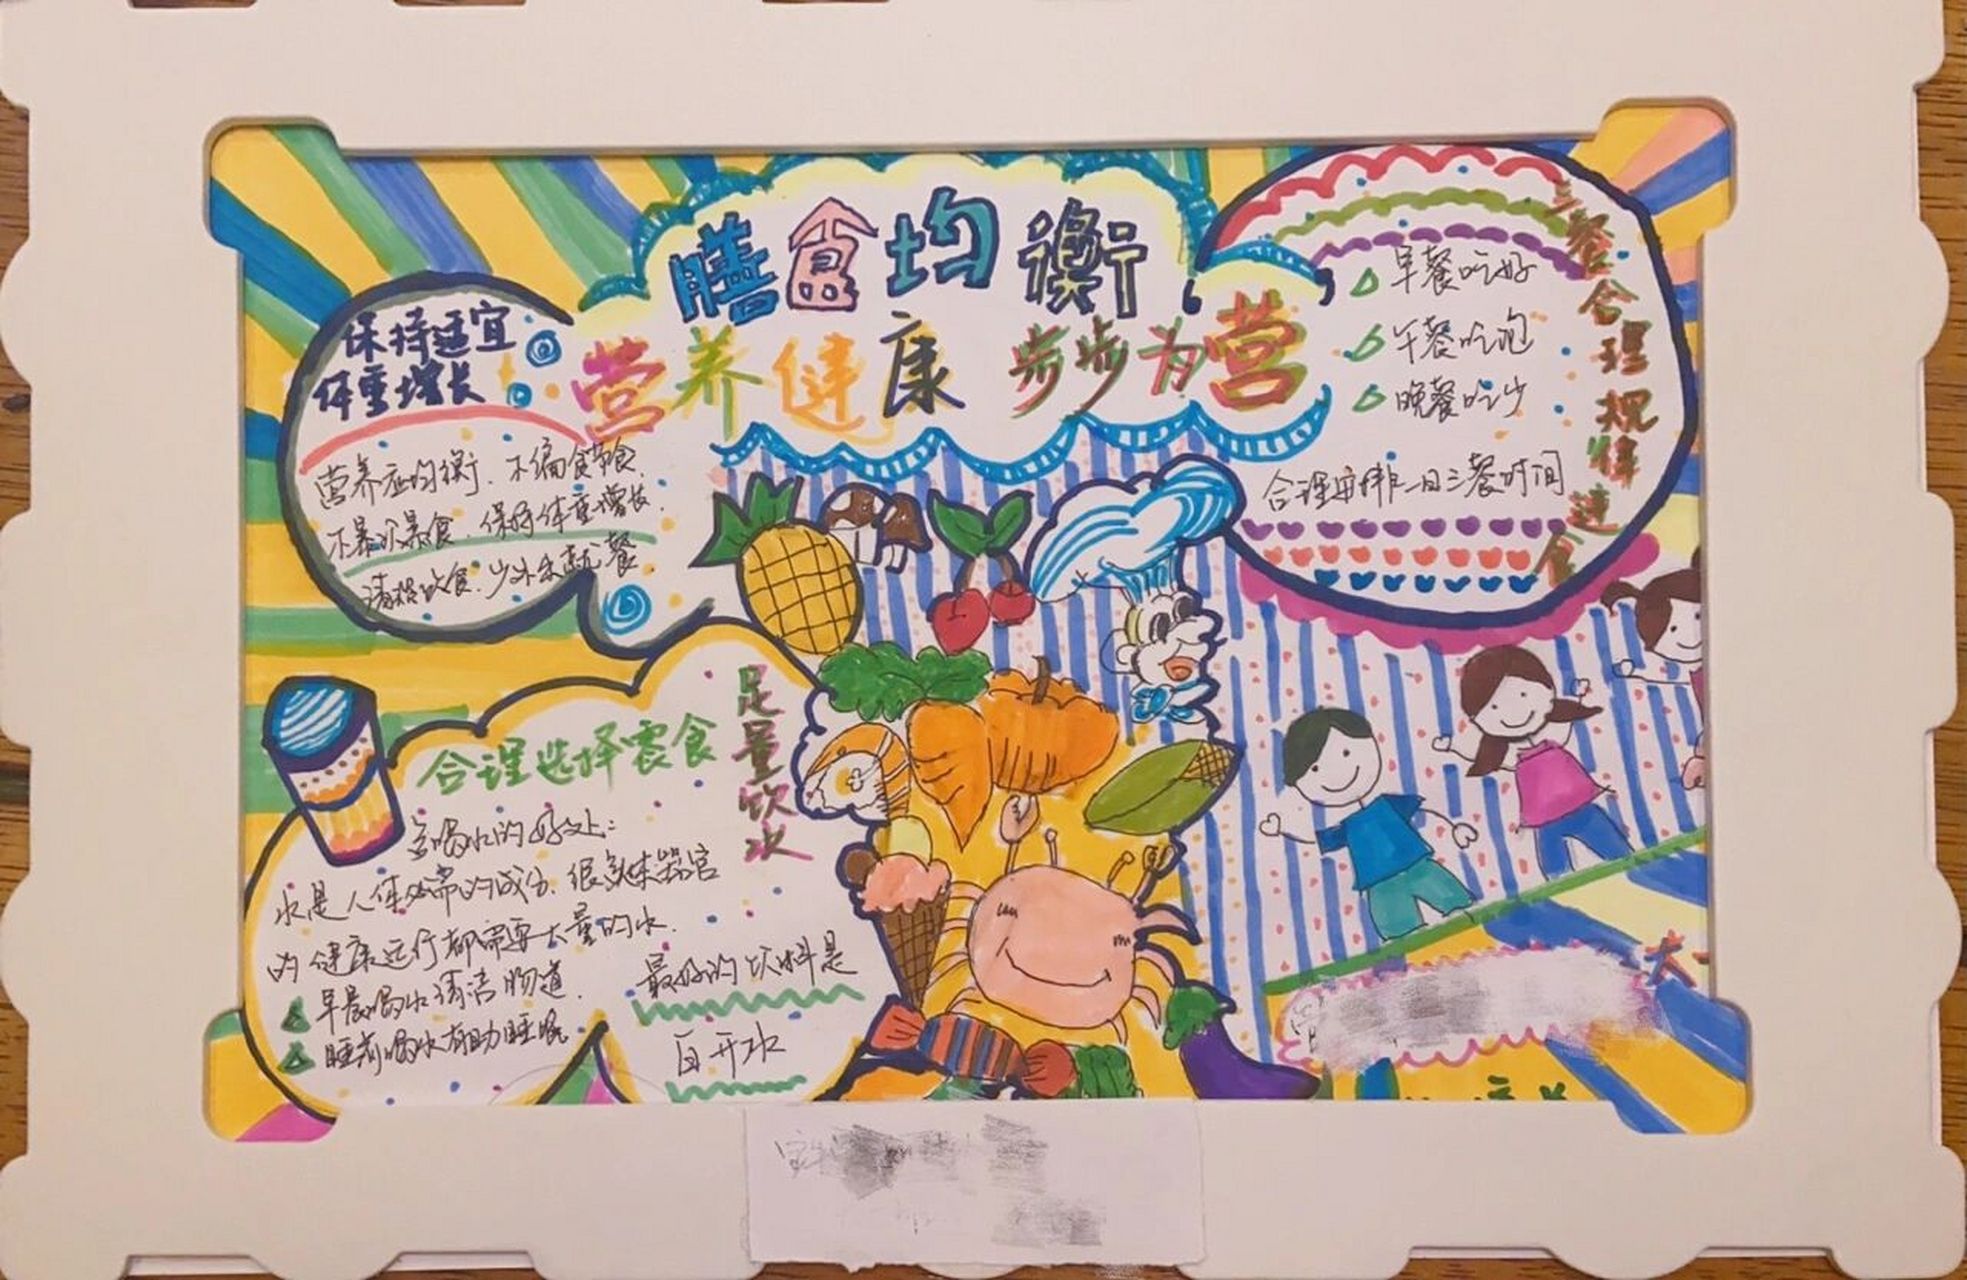 膳食均衡
营养健康 步步为营
保持适宜
体重增长
营养应均衡、不偏食挑食、
不暴饮暴食、保持体重增长、
清格饮食、少外出就餐
三餐合理规律进食
早餐吃好
午餐吃饱
晚餐吃少
合理安排一日三餐时间
合理选择零食
足量饮水
多喝水的好处:
水是人体必需的成分、很多身体器官
的健康运行都需要大量的水、
早晨喝水清洁肠道、
睡前喝水有助睡眠
最好的饮料是
白开水